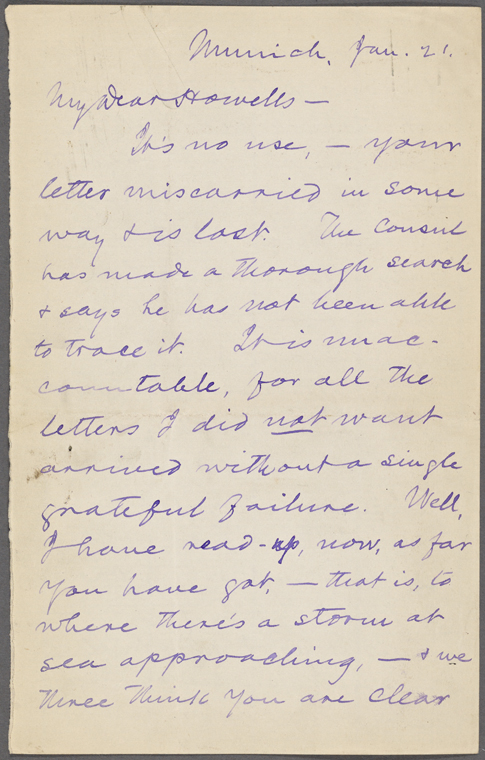 Munich, Jan. 21.
My Dear Howells —
It's no use, — your
letter miscarried in some
way & is lost. The Consul
has made a thorough search
& says he has not been able
to trace it. It is unac-
countable, for all the
letters I did not want
arrived without a single
grateful failure. Well,
I have read-up, now, as far
you have got, — that is, to
where there's a storm at
sea approaching, — & we
three think you are clear